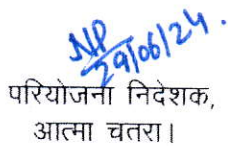 NP
29/06/24.
परियोजना निदेशक,
आत्मा चतरा।